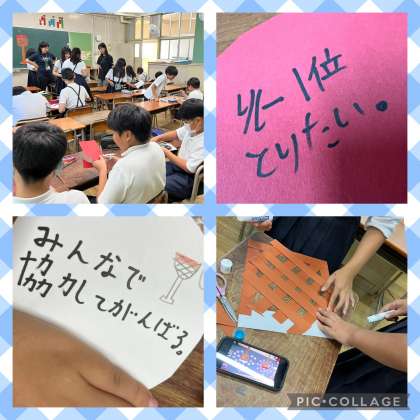 リレー1位
とりたい。
みんなで
協力してがんばる。
PIC•COLLAGE